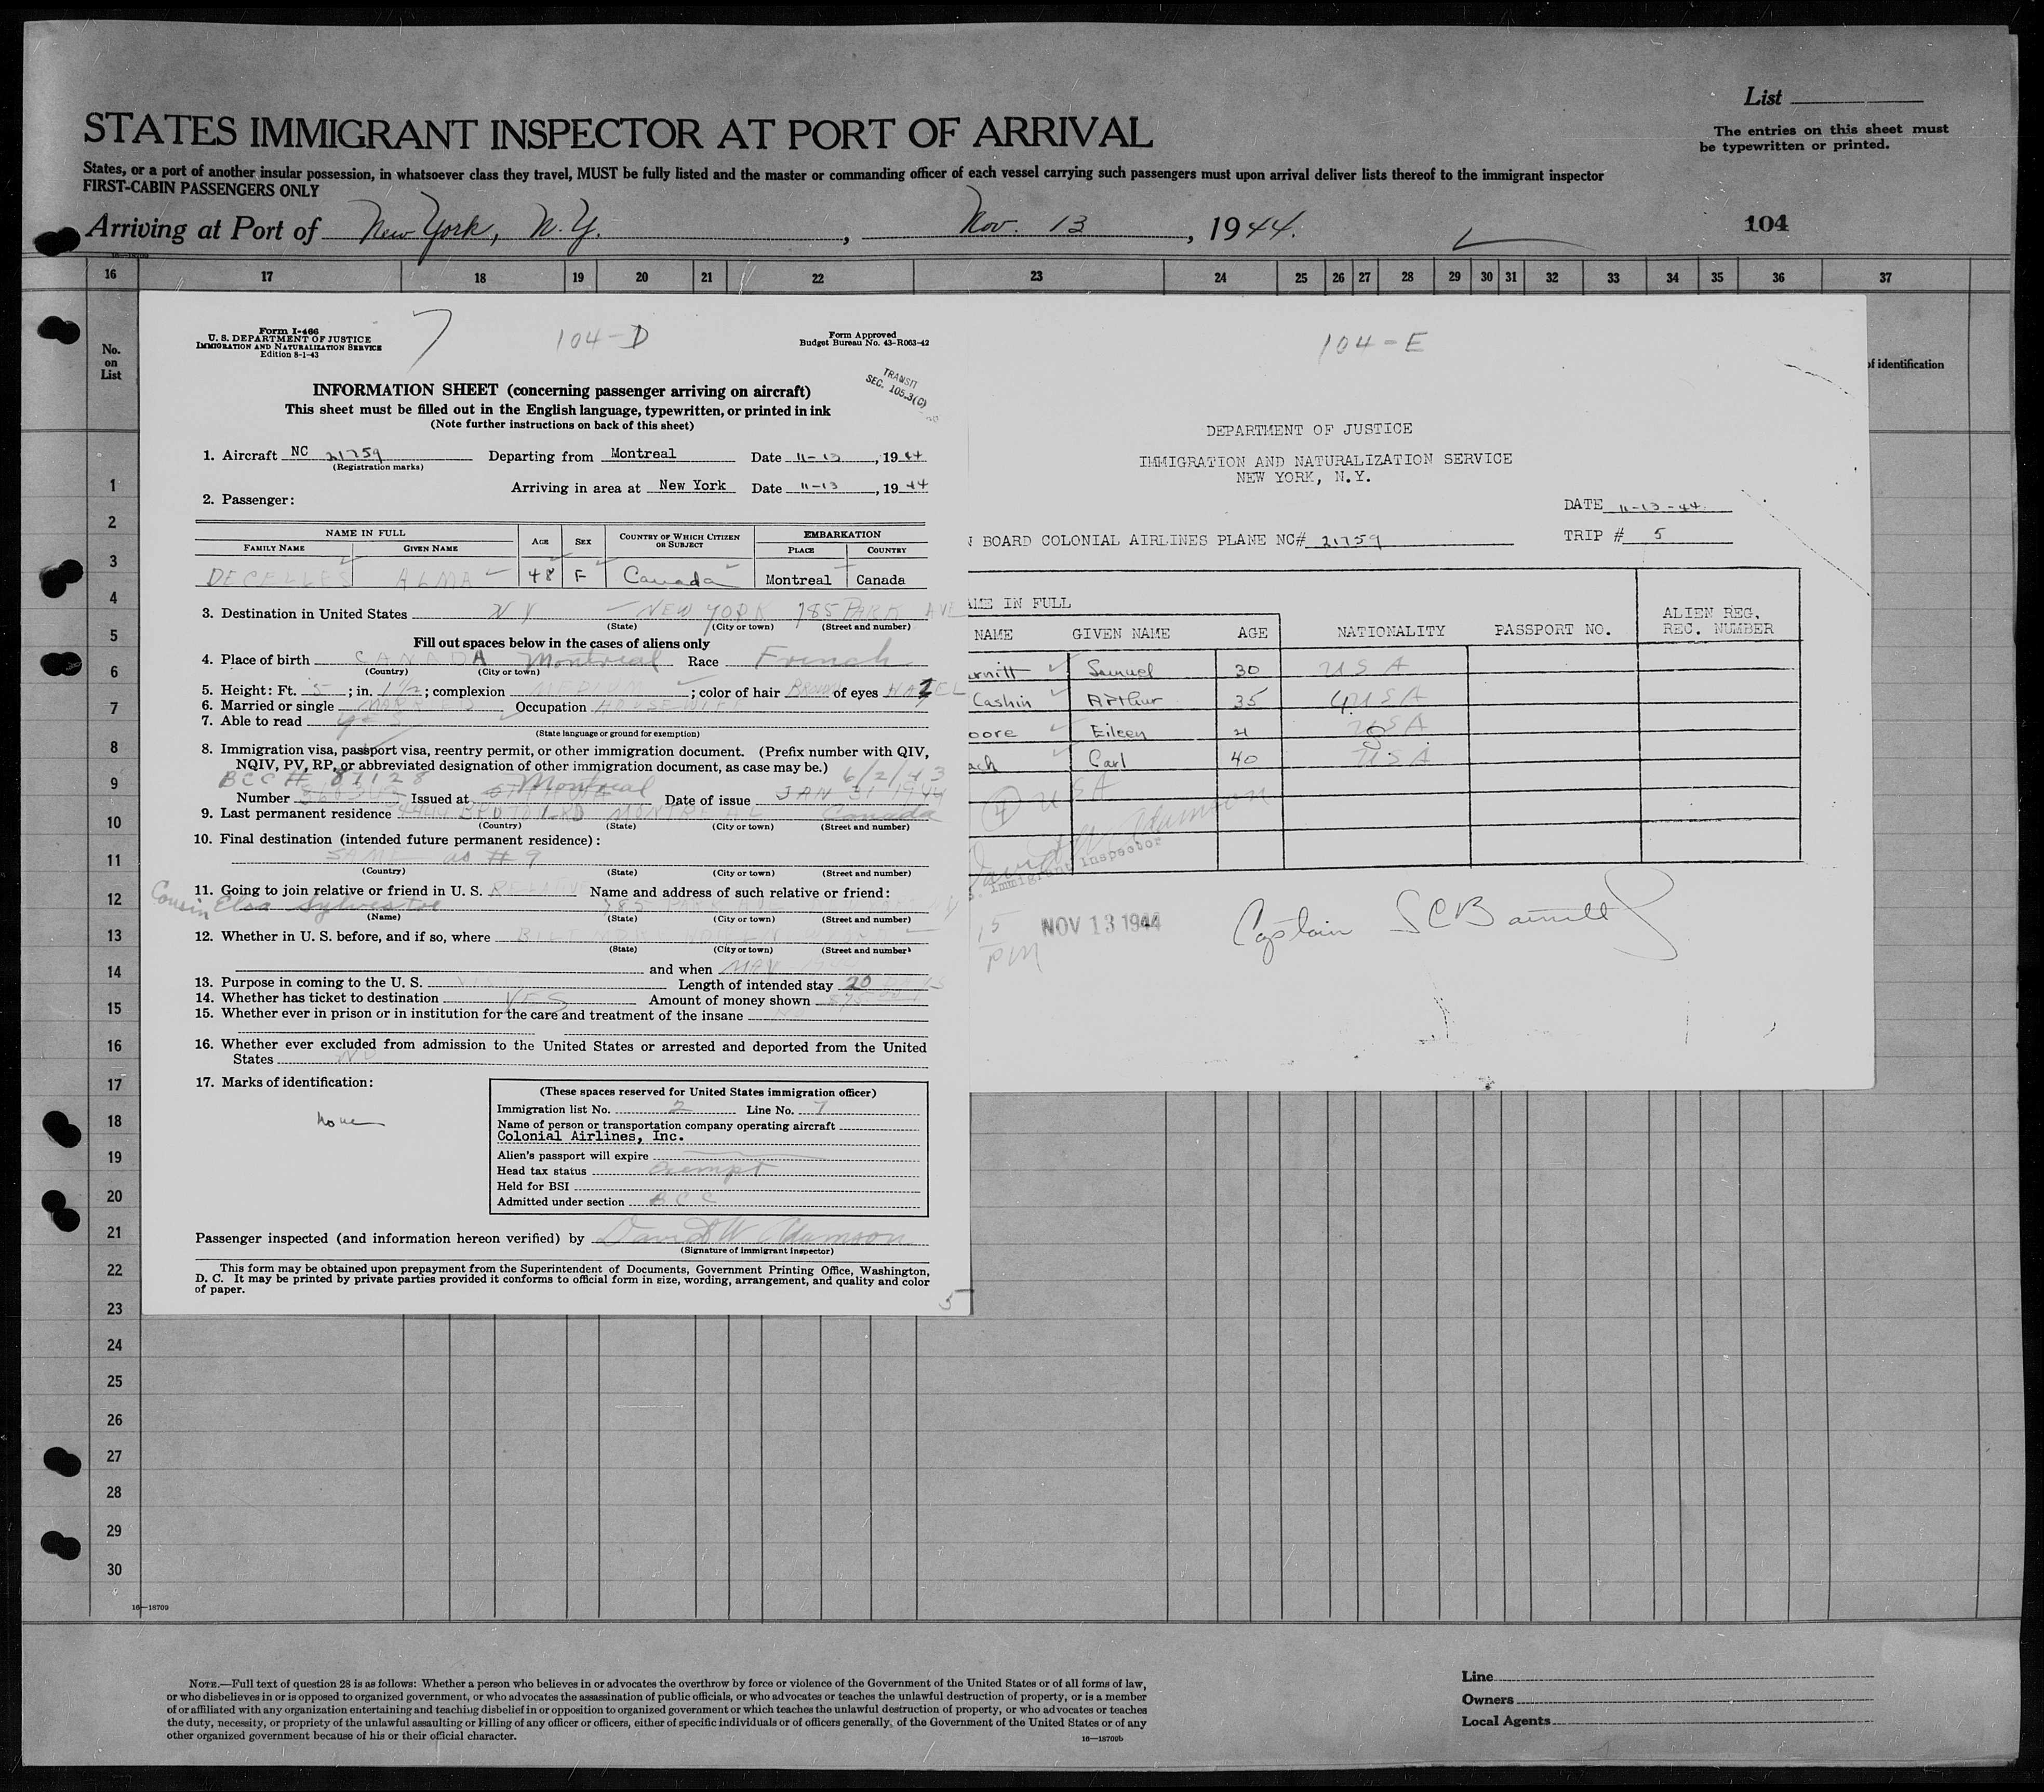 List
STATES IMMIGRANT INSPECTOR AT PORT OF ARRIVAL
The entries on this sheet must
be typewritten or printed.
States, or a port of another insular possession, in whatsoever class they travel, MUST be fully listed and the master or commanding officer of each vessel carrying such passengers must upon arrival deliver lists thereof to the immigrant inspector
FIRST-CABIN PASSENGERS ONLY
Arriving at Port of New York, N.Y., Nov. 13, 1944. 104
16 17 18 19 20 21 22 23 24 25 26 27 28 29 30 31 32 33 34 35 36 37
No.
on
List
of identification
1
2
3
4
5
6
7
8
9
10
11
12
13
14
15
16
17
18
19
20
21
22
23
24
25
26
27
28
29
30
16—18709
Form I-466
U. S. DEPARTMENT OF JUSTICE
IMMIGRATION AND NATURALIZATION SERVICE
Edition 8-1-43
7
104-D
Form Approved
Budget Bureau No. 43-R063-42
TRANSIT
SEC. 105.3(C)
INFORMATION SHEET (concerning passenger arriving on aircraft)
This sheet must be filled out in the English language, typewritten, or printed in ink
(Note further instructions on back of this sheet)
1. Aircraft NC 21759 Departing from Montreal Date 11-13, 1944
(Registration marks)
Arriving in area at New York Date 11-13, 1944
2. Passenger:
NAME IN FULL AGE SEX COUNTRY OF WHICH CITIZEN OR SUBJECT EMBARKATION
FAMILY NAME GIVEN NAME PLACE COUNTRY
DECELLES ALMA 48 F Canada Montreal Canada
3. Destination in United States NY NEW YORK 785 PARK AVE
(State) (City or town) (Street and number)
Fill out spaces below in the cases of aliens only
4. Place of birth CANADA Montreal Race French
(Country) (City or town)
5. Height: Ft. 5; in. 1 1/2; complexion MEDIUM; color of hair BROWN of eyes HAZEL
6. Married or single MARRIED Occupation HOUSEWIFE
7. Able to read yes
(State language or ground for exemption)
8. Immigration visa, passport visa, reentry permit, or other immigration document. (Prefix number with QIV,
NQIV, PV, RP, or abbreviated designation of other immigration document, as case may be.)
BCC # 87128 Montreal 6/2/43
Number Issued at Date of issue JAN 31 1944
9. Last permanent residence MONTREAL Canada
(Country) (State) (City or town) (Street and number)
10. Final destination (intended future permanent residence):
SAME as # 9
(Country) (State) (City or town) (Street and number)
11. Going to join relative or friend in U. S. RELATIVE Name and address of such relative or friend:
Cousin Elsa Sylvestre 785 PARK AVE
(Name) (State) (City or town) (Street and number)
12. Whether in U. S. before, and if so, where
(State) (City or town) (Street and number)
and when MAY
13. Purpose in coming to the U. S. Length of intended stay 20 DAYS
14. Whether has ticket to destination YES Amount of money shown
15. Whether ever in prison or in institution for the care and treatment of the insane
16. Whether ever excluded from admission to the United States or arrested and deported from the United
States NO
17. Marks of identification:
None
(These spaces reserved for United States immigration officer)
Immigration list No. 2 Line No. 7
Name of person or transportation company operating aircraft
Colonial Airlines, Inc.
Alien's passport will expire
Head tax status Exempt
Held for BSI
Admitted under section BCC
Passenger inspected (and information hereon verified) by David W Adamson
(Signature of Immigrant Inspector)
This form may be obtained upon prepayment from the Superintendent of Documents, Government Printing Office, Washington,
D. C. It may be printed by private parties provided it conforms to official form in size, wording, arrangement, and quality and color
of paper.
5
104-E
DEPARTMENT OF JUSTICE
IMMIGRATION AND NATURALIZATION SERVICE
NEW YORK, N.Y.
DATE 11-13-44
N BOARD COLONIAL AIRLINES PLANE NC# 21759 TRIP # 5
AME IN FULL
NAME GIVEN NAME AGE NATIONALITY PASSPORT NO. ALIEN REG. REC. NUMBER
rnitt Samuel 30 USA
Cashin Arthur 35 USA
oore Eileen 21 USA
ach Carl 40 USA
4 USA
David W Adamson
Immigrant Inspector
15
PM
NOV 13 1944
Captain
NOTE.—Full text of question 28 is as follows: Whether a person who believes in or advocates the overthrow by force or violence of the Government of the United States or of all forms of law,
or who disbelieves in or is opposed to organized government, or who advocates the assassination of public officials, or who advocates or teaches the unlawful destruction of property, or is a member
of or affiliated with any organization entertaining and teaching disbelief in or opposition to organized government or which teaches the unlawful destruction of property, or who advocates or teaches
the duty, necessity, or propriety of the unlawful assaulting or killing of any officer or officers, either of specific individuals or of officers generally, of the Government of the United States or of any
other organized government because of his or their official character.
16—18709b
Line
Owners
Local Agents